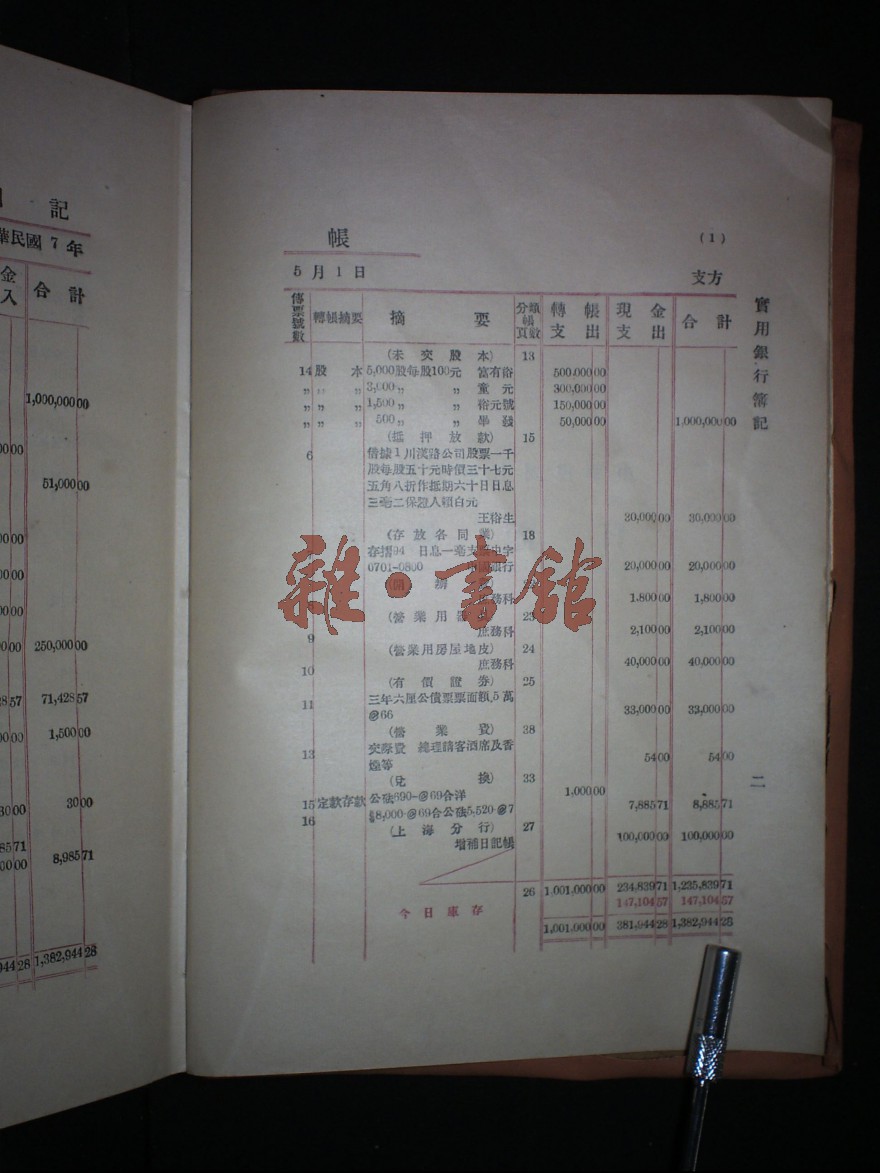 記
華民國 7 年
金 合計
入
1,000,000 00
51,000 00
250,000 00
71,428 57
1,500 00
30 00
8,985 71
944 28 1,382,944 28
帳 (1)
5 月 1 日 支方
傳票號數 轉帳摘要 摘要 分類帳頁數 轉帳支出 現金支出 合計
(未交股本) 13
14 股本 5,000股每股100元 富有裕 500,000 00
〃 〃 〃 3,000〃 〃 童元 300,000 00
〃 〃 〃 1,500〃 〃 裕元號 150,000 00
〃 〃 〃 500〃 〃 畢發 50,000 00 1,000,000 00
(抵押放款) 15
6 借據1川漢路公司股票一千
股每股五十元時價三十七元
五角八折作抵期六十日日息
三毫二保證人賴白元
王裕生 30,000 00 30,000 00
(存放各同業) 18
存摺94 日息一毫支 字
0701-0800 中國銀行 20,000 00 20,000 00
庶務科 1,800 00 1,800 00
(營業用器具) 23
9 庶務科 2,100 00 2,100 00
(營業用房屋地皮) 24
10 庶務科 40,000 00 40,000 00
(有價證券) 25
11 三年六厘公債票票面額5萬
@66 33,000 00 33,000 00
(營業費) 38
13 交際費 總理請客酒席及香
煙等 54 00 54 00
(兌換) 33
15 定款存款 公砝690-@69合洋 1,000 00
16 $8,000-@69合公砝5,520-@7 7,885 71 8,885 71
(上海分行) 27
增補日記帳 100,000 00 100,000 00
26 1,001,000 00 234,839 71 1,235,839 71
今日庫存 147,104 57 147,104 57
1,001,000 00 381,944 28 1,382,944 28
實用銀行簿記
二
雜·書館